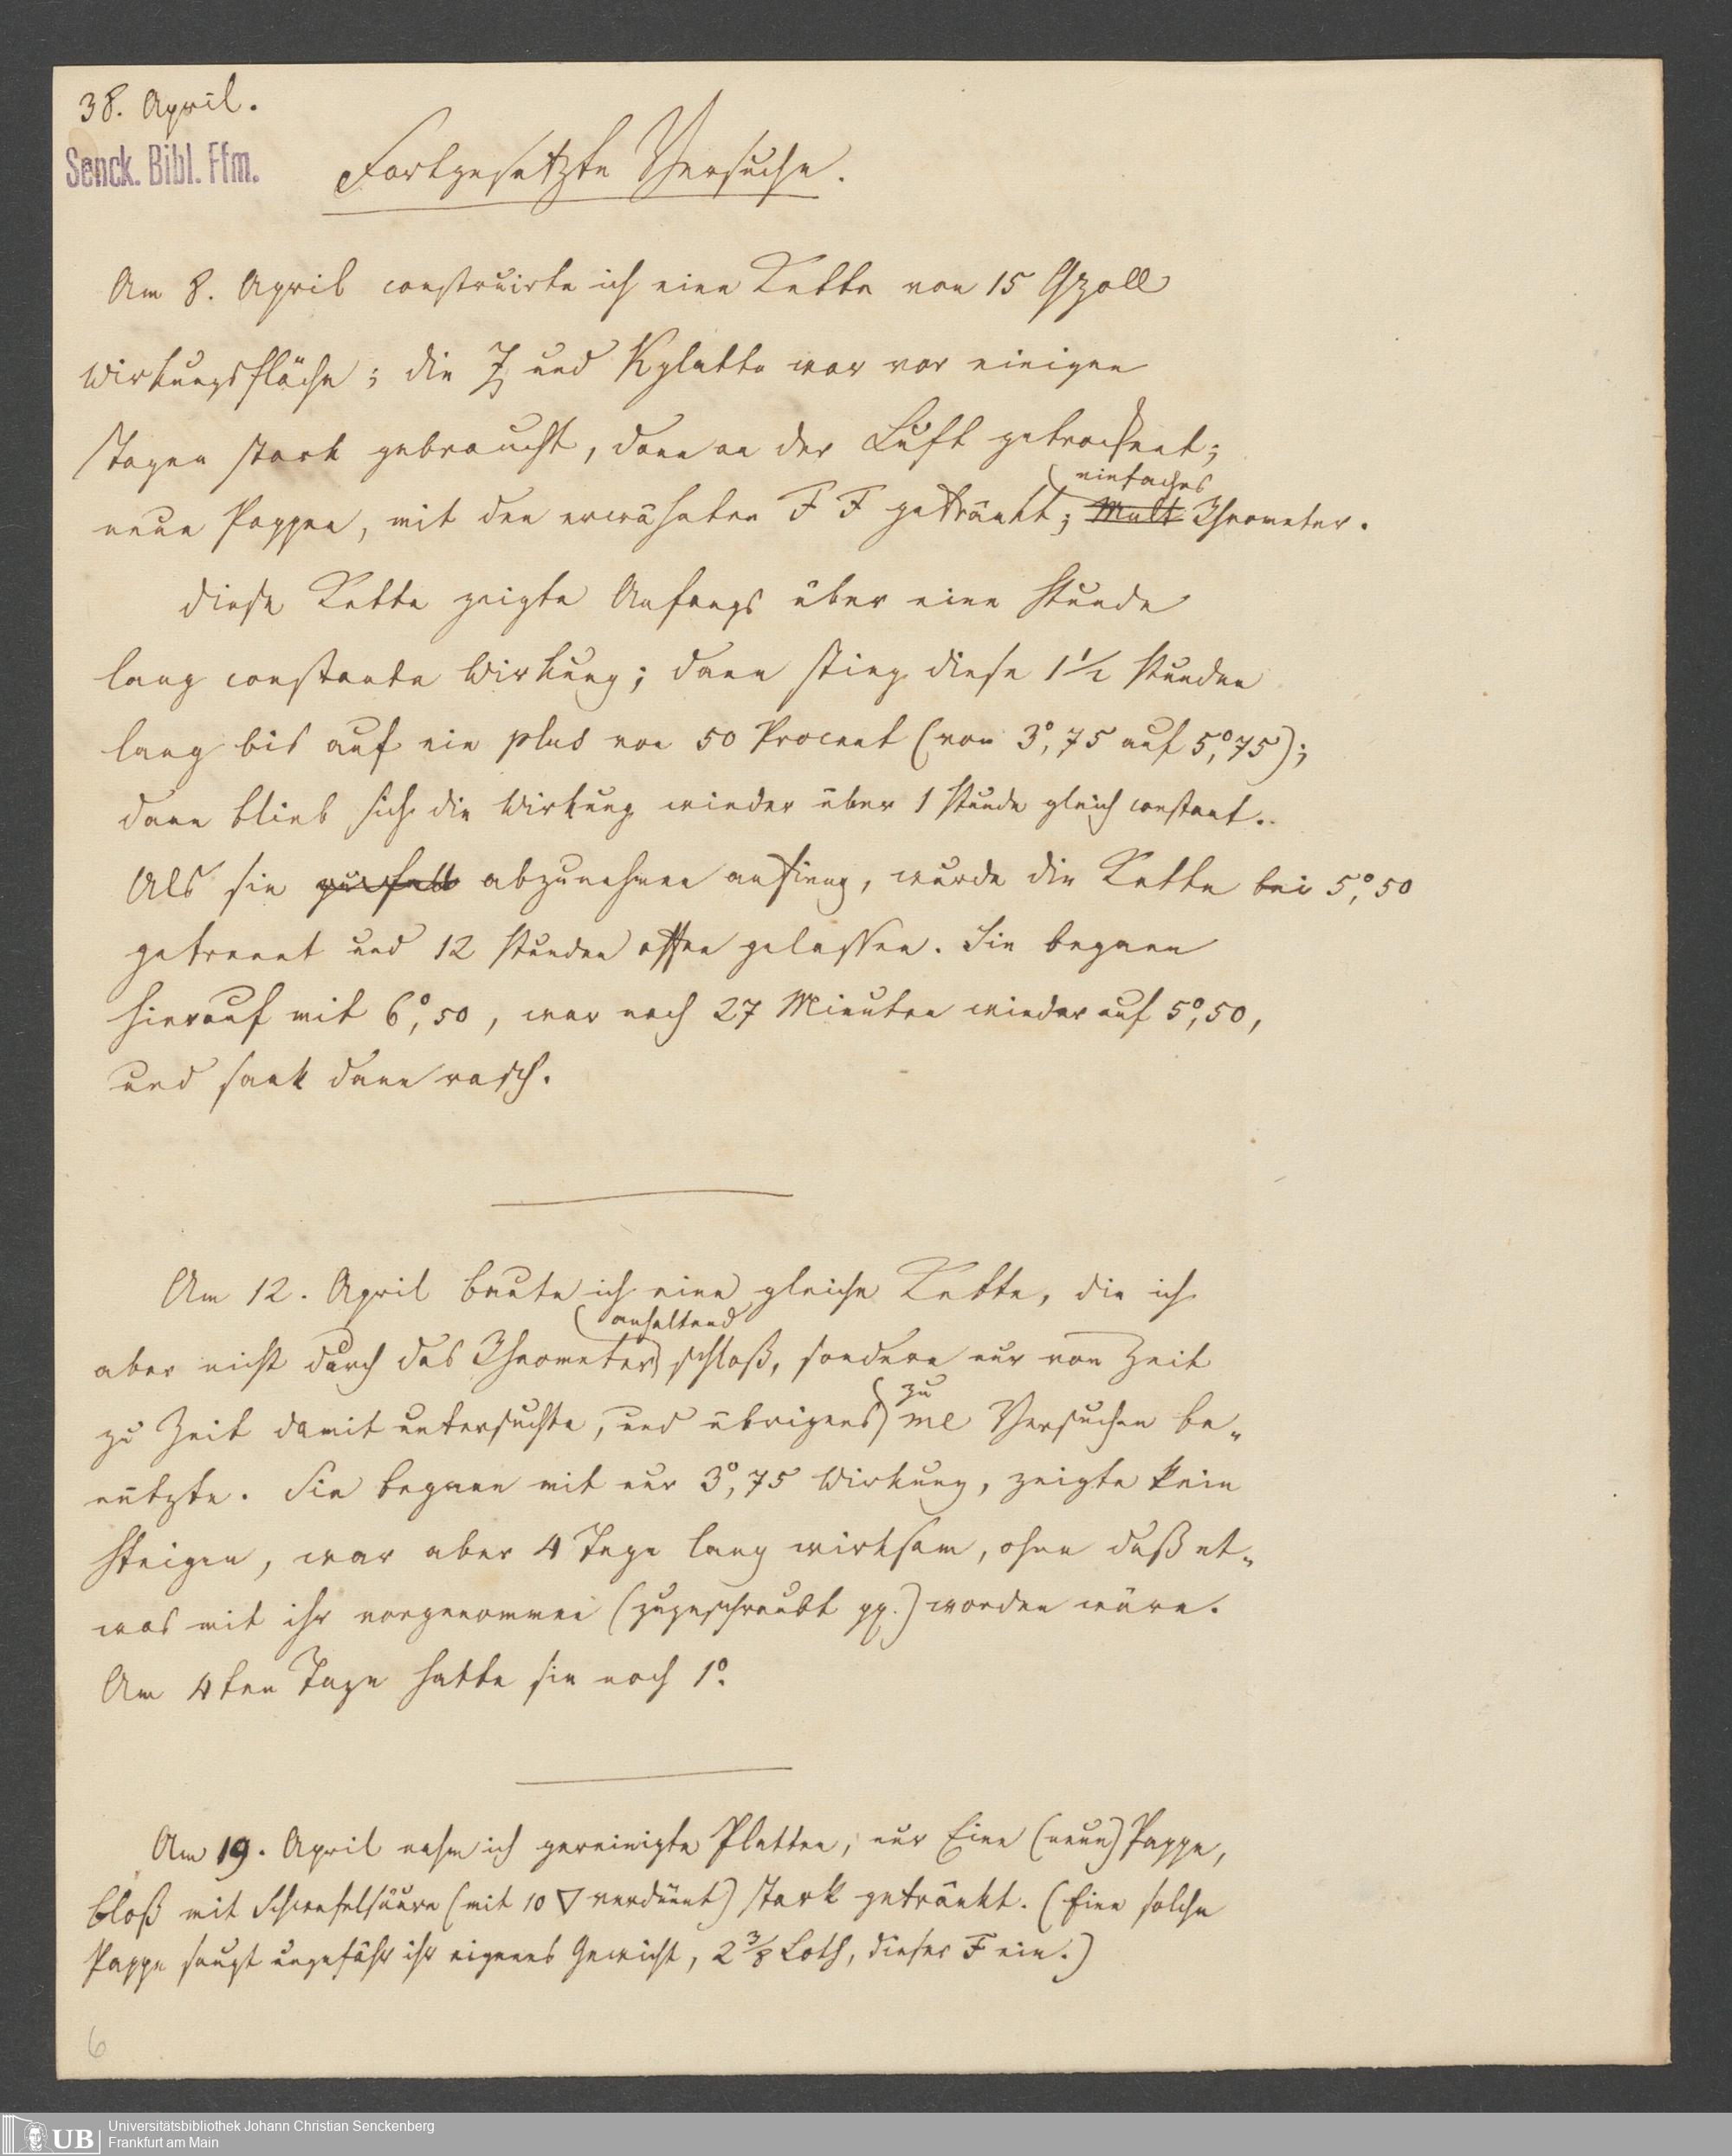 38. April.
Senck. Bibl. Ffm.
Fortgesetzte Versuche.
Am 8. April construirte ich eine Kette von 15 Qzoll
Wirkungsfläche; die Z und Kplatte war vor einigen
Tagen stark gebraucht, dann an der Luft getrocknet;
einfaches
neue Pappen, mit den erwähnten F F getränkt; Mult Rheometer.
Diese Kette zeigte Anfangs über eine Stunde
lang constante Wirkung; dann stieg diese 1 1/2 Stunden
lang bis auf ein plus von 50 Procent (von 3°,75 auf 5°,75);
dann blieb sich die Wirkung wieder über 1 Stunde gleich constant.
Als sie abzunehmen anfieng, wurde die Kette bei 5°,50
getrennt und 12 Stunden offen gelassen. Sie begann
hierauf mit 6°,50, war nach 27 Minuten wieder auf 5°,50,
und sank dann rasch.
Am 12. April baute ich eine gleiche Kette, die ich
anhaltend
aber nicht durch das Rheometer schloß, sondern nur von Zeit
zu
zu Zeit damit untersuchte, und übrigens me Versuchen be-
nützte. Sie begann mit nur 3°,75 Wirkung, zeigte kein
Steigen, war aber 4 Tage lang wirksam, ohne daß et-
was mit ihr vorgenommen (zugeschraubt pp.) worden wäre.
Am 4ten Tage hatte sie noch 1°.
Am 19. April nahm ich gereinigte Platten, nur Eine (neue) Pappe,
bloß mit Schwefelsäure (mit 10 ▽ verdünnt) stark getränkt. (Eine solche
Pappe saugt ungefähr ihr eigenes Gewicht, 2 3/8 Loth, dieser F ein.)
6
UB Universitätsbibliothek Johann Christian Senckenberg
Frankfurt am Main